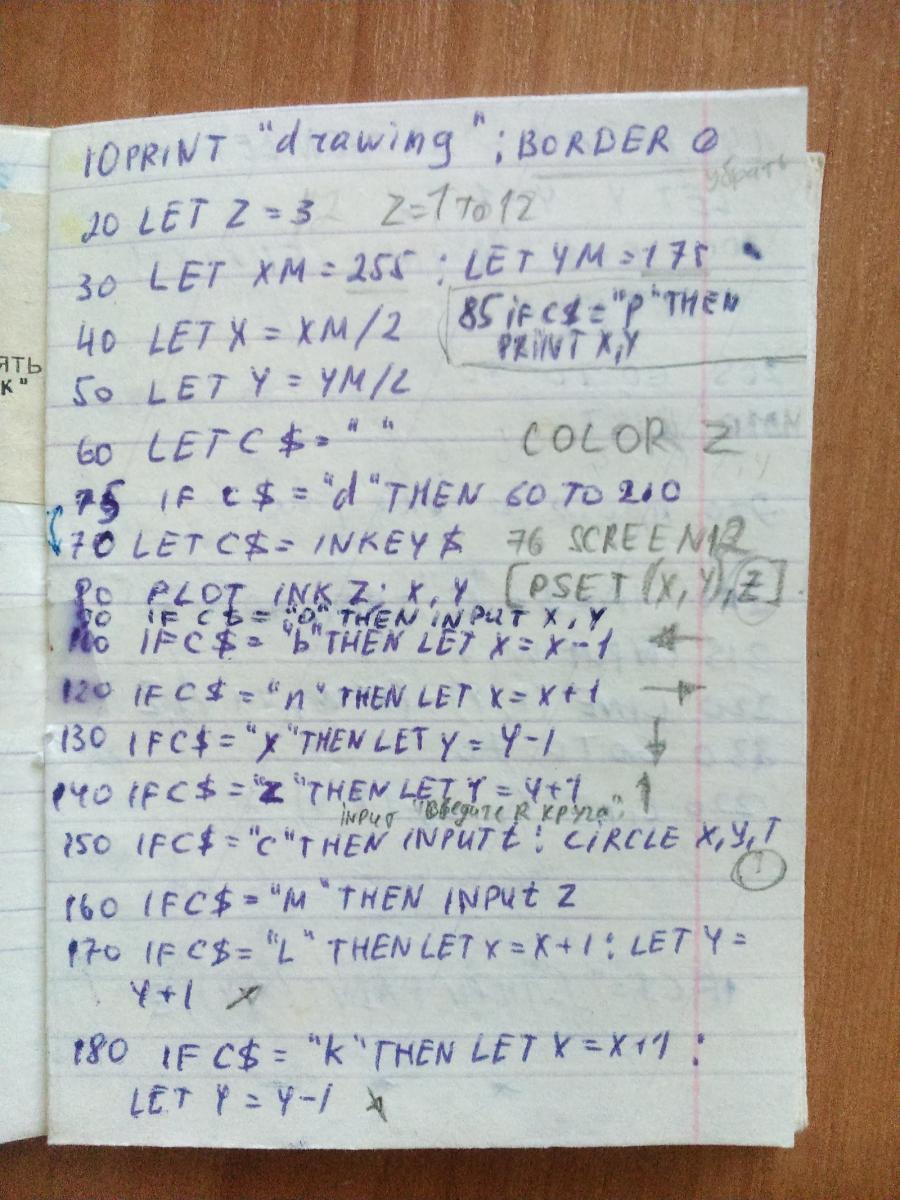 10 PRINT "drawing" ; BORDER 0
убрать
20 LET Z = 3 Z=1 TO 12
30 LET XM = 255 : LET YM = 175
85 IF C$ = "P" THEN
PRINT X,Y
40 LET X = XM/2
ЯТЬ
К"
50 LET Y = YM/2
60 LET C$ = " "
COLOR Z
75 IF C$ = "d" THEN GO TO 210
70 LET C$ = INKEY$ 76 SCREEN 12
80 PLOT INK Z; X, Y [PSET (X, Y), Z]
IF C$ = "O" THEN INPUT X, Y
110 IF C$ = "b" THEN LET X = X-1 ←
120 IF C$ = "n" THEN LET X = X+1 →
130 IF C$ = "X" THEN LET Y = Y-1 ↓
140 IF C$ = "Z" THEN LET Y = Y+1 ↑
INPUT "Введите R круга";
150 IF C$ = "C" THEN INPUT t : CIRCLE X,Y,T
160 IF C$ = "M" THEN INPUT Z
170 IF C$ = "L" THEN LET X = X+1 : LET Y =
Y+1 ↗
180 IF C$ = "K" THEN LET X = X+1 :
LET Y = Y-1 ↘